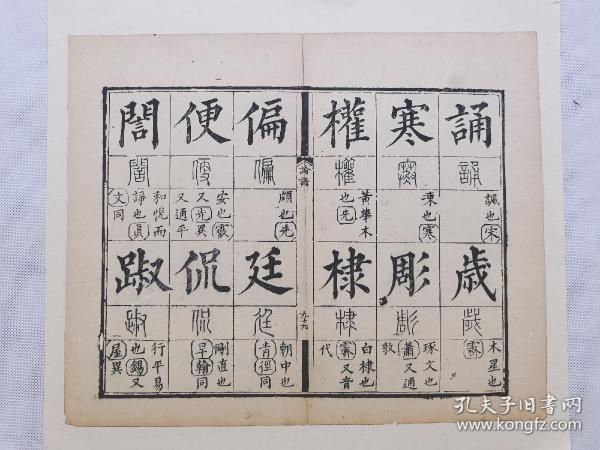 誦
誦
諷也宋
歲
歲
木星也
霽
寒
寒
凍也寒
彫
彫
琢文也
蕭又通
敦
權
權
黃華木
也先
棣
棣
白棣也
霽又音
代
論語
九十九
偏
偏
頗也先
廷
廷
朝中也
青徑同
便
便
安也霰
又先異
又通平
侃
侃
剛直也
旱翰同
誾
誾
和悅而
諍也真
文同
踧
踧
行平易
也錫又
屋異
孔夫子旧书网
www.kongfz.com